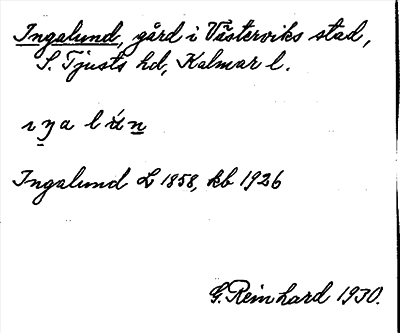 Ingalund, gård i Västerviks stad,
S. Tjusts hd, Kalmar l.
Ingalund L 1858, kb 1926
G. Reinhard 1930.